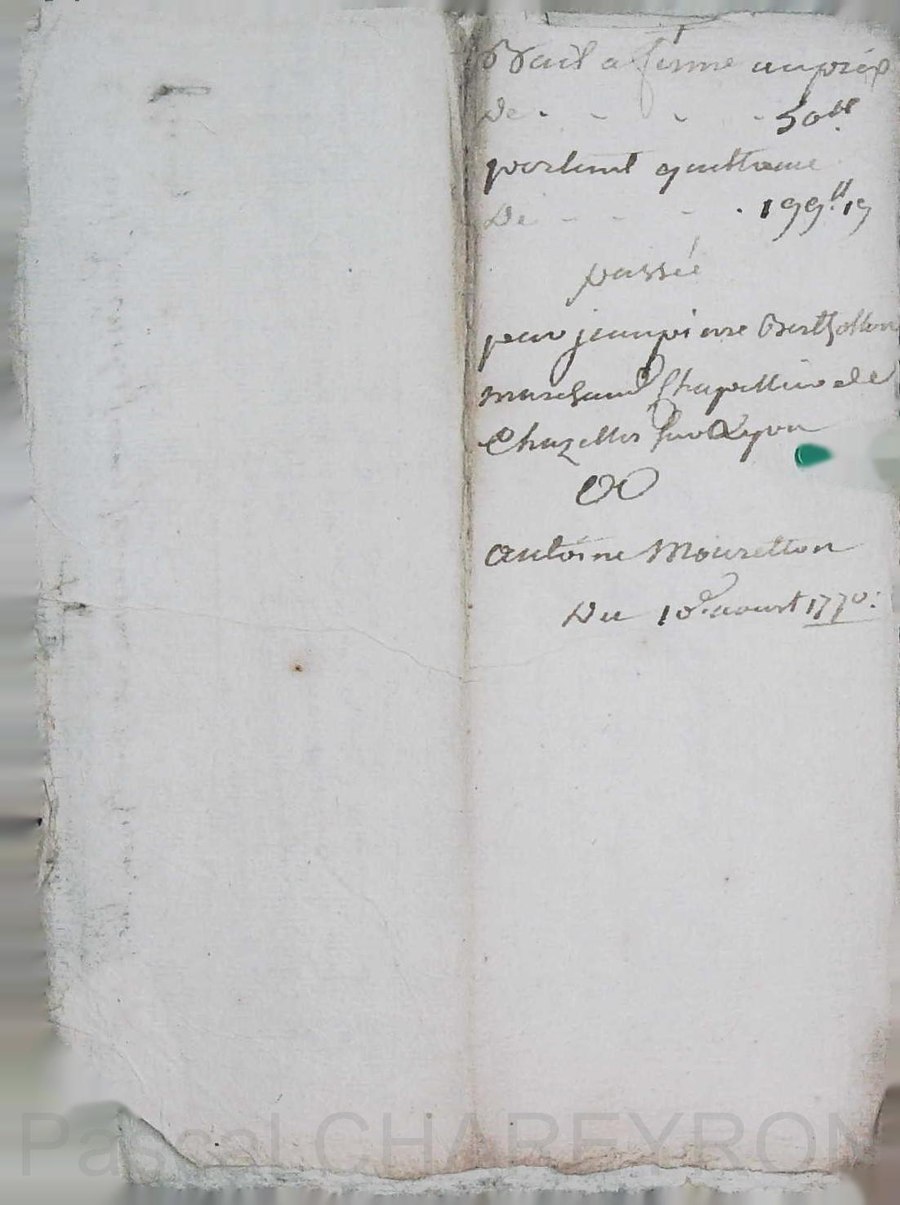 Bail a ferme au prix
De - - - - 50ll
portent quittance
De - - - . 199ll 19
passée
par jeanpierre Berthollon
marchand Chapellier de
Chazelles sur Lyon
a
antoine Mouretton
Du 10e aoust 1770:
Pascal CHAREYRON